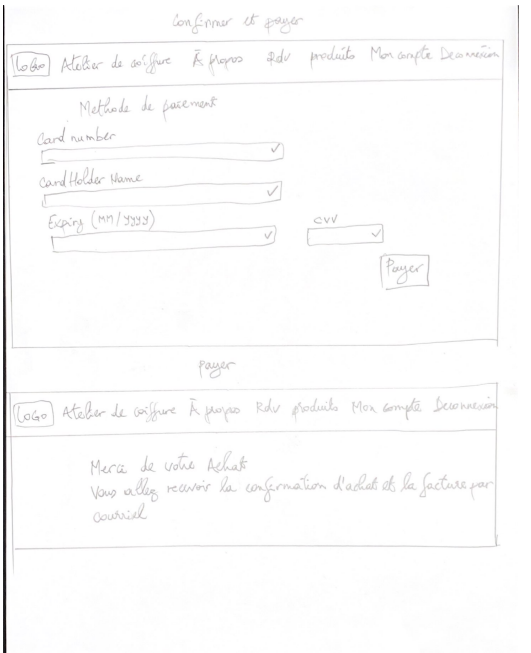 Confirmer et payer
LOGO Atelier de coiffure À propos Rdv produits Mon compte Deconnexion
Methode de paiement
Card number
Card Holder Name
Expiry (MM/YYYY) CVV
Payer
payer
LOGO Atelier de coiffure À propos Rdv produits Mon compte Deconnexion
Merci de votre Achat
Vous allez recevoir la confirmation d'achat et la facture par
courriel